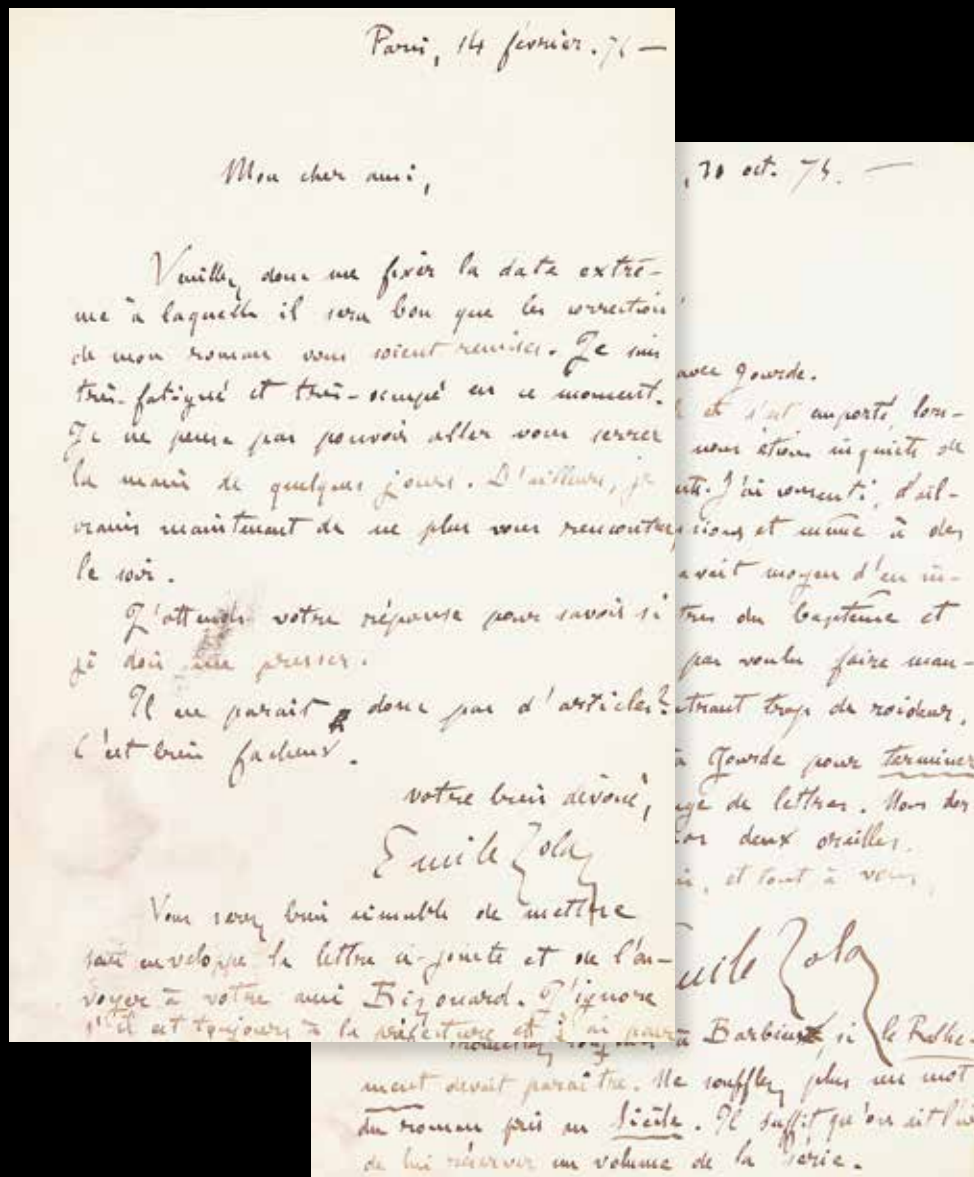 Paris, 14 février. 76 —
Mon cher ami,
Veuillez donc me fixer la data extrê-
me à laquelle il sera bon que les correction
de mon roman vous soient remises. Je suis
très-fatigué et très-occupé en ce moment.
Je ne pense pas pouvoir aller vous serrer
la main de quelques jours. D'ailleurs, je
crains maintenant de ne plus vous rencontrer
le soir.
J'attends votre réponse pour savoir si
je dois me presser.
Il ne parait donc pas d'articles?
C'est bien facheux.
votre bien dévoué,
Emile Zola
Vous serez bien aimable de mettre
sous enveloppe la lettre ci-jointe et de l'en-
voyer à votre ami Bizouard. J'ignore
s'il est toujours à la préfecture et j'ai peur
, 30 oct. 75. —
avec Gourde.
et s'est emporté, lors-
nous étions inquiets de
J'ai consenti, d'ail-
et même à des
avait moyen d'en
du baptême et
pas voulu faire man-
trant trop de roideur,
à Gourde pour terminer
de lettres. Mon
deux oreilles.
et tout à vous,
mile Zola
à Barbieux, si le Rallie-
ment devait paraître. Ne soufflez plus un mot
du roman pris au Siècle. Il suffit qu'on ait
de lui réserver un volume de la série.